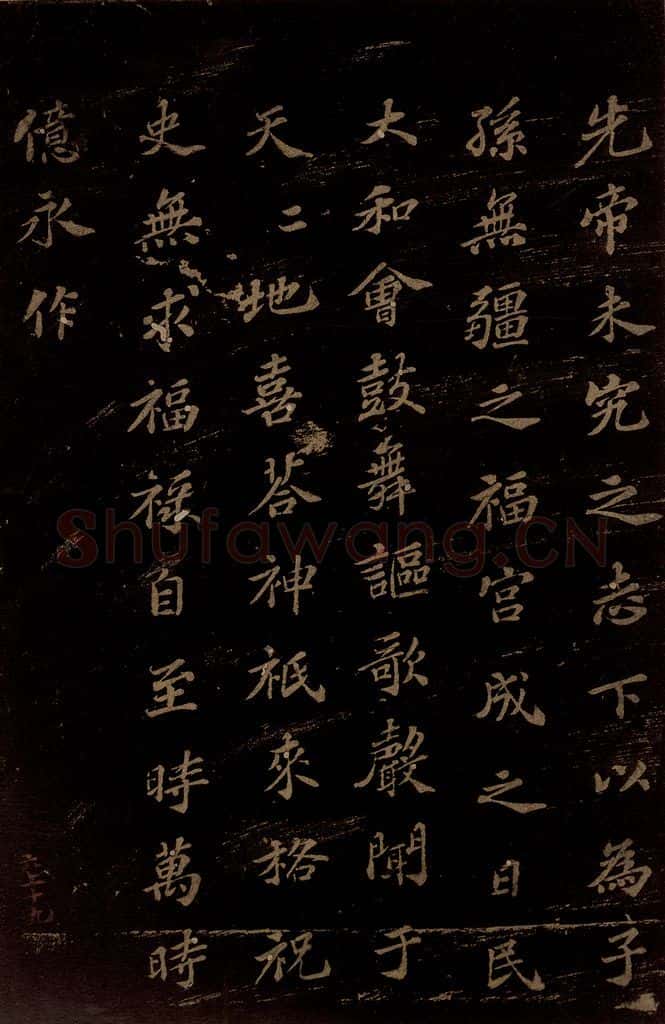 先帝未究之志下以為子
孫無疆之福宮成之日民
大和會鼓舞謳歌聲聞于
天二地喜荅神祇來格祝
史無求福祿自至時萬時
億永作
Shufawang.CN